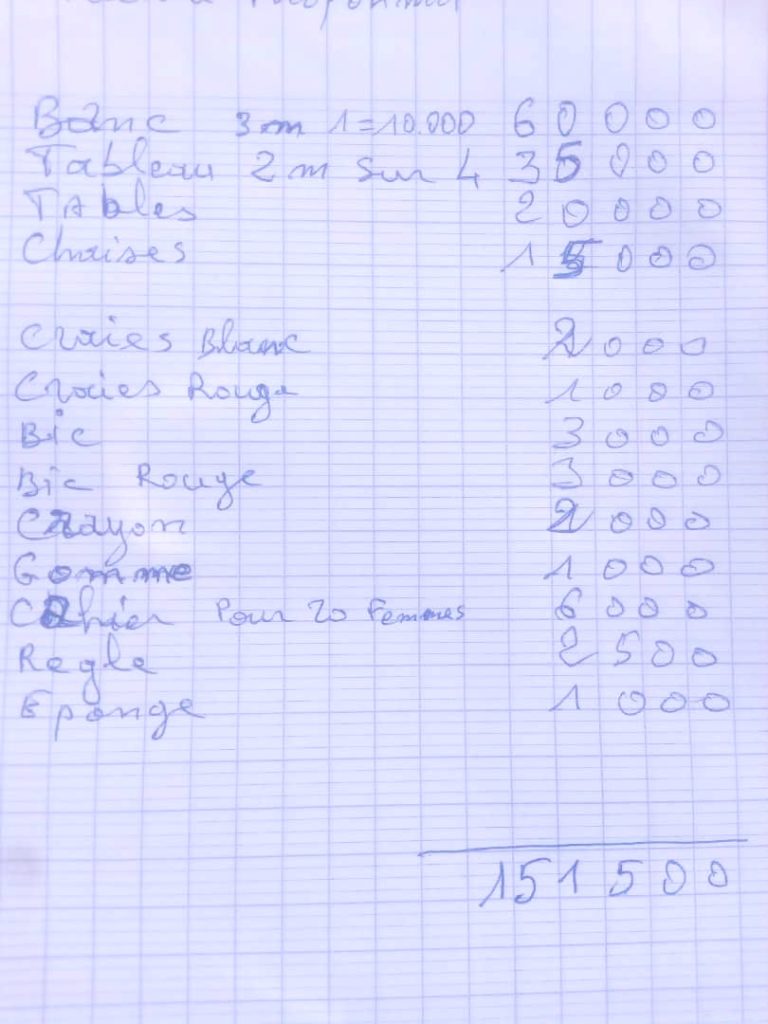 Banc 3m 1=10.000 60000
Tableau 2m Sur 4 35000
TAbles 20000
Chaises 15000
Craies Blanc 2000
Craies Rouge 1000
Bic 3000
Bic Rouge 3000
Crayon 2000
Gomme 1000
Cahier Pour 20 Femmes 6000
Regle 2500
Eponge 1000
151500